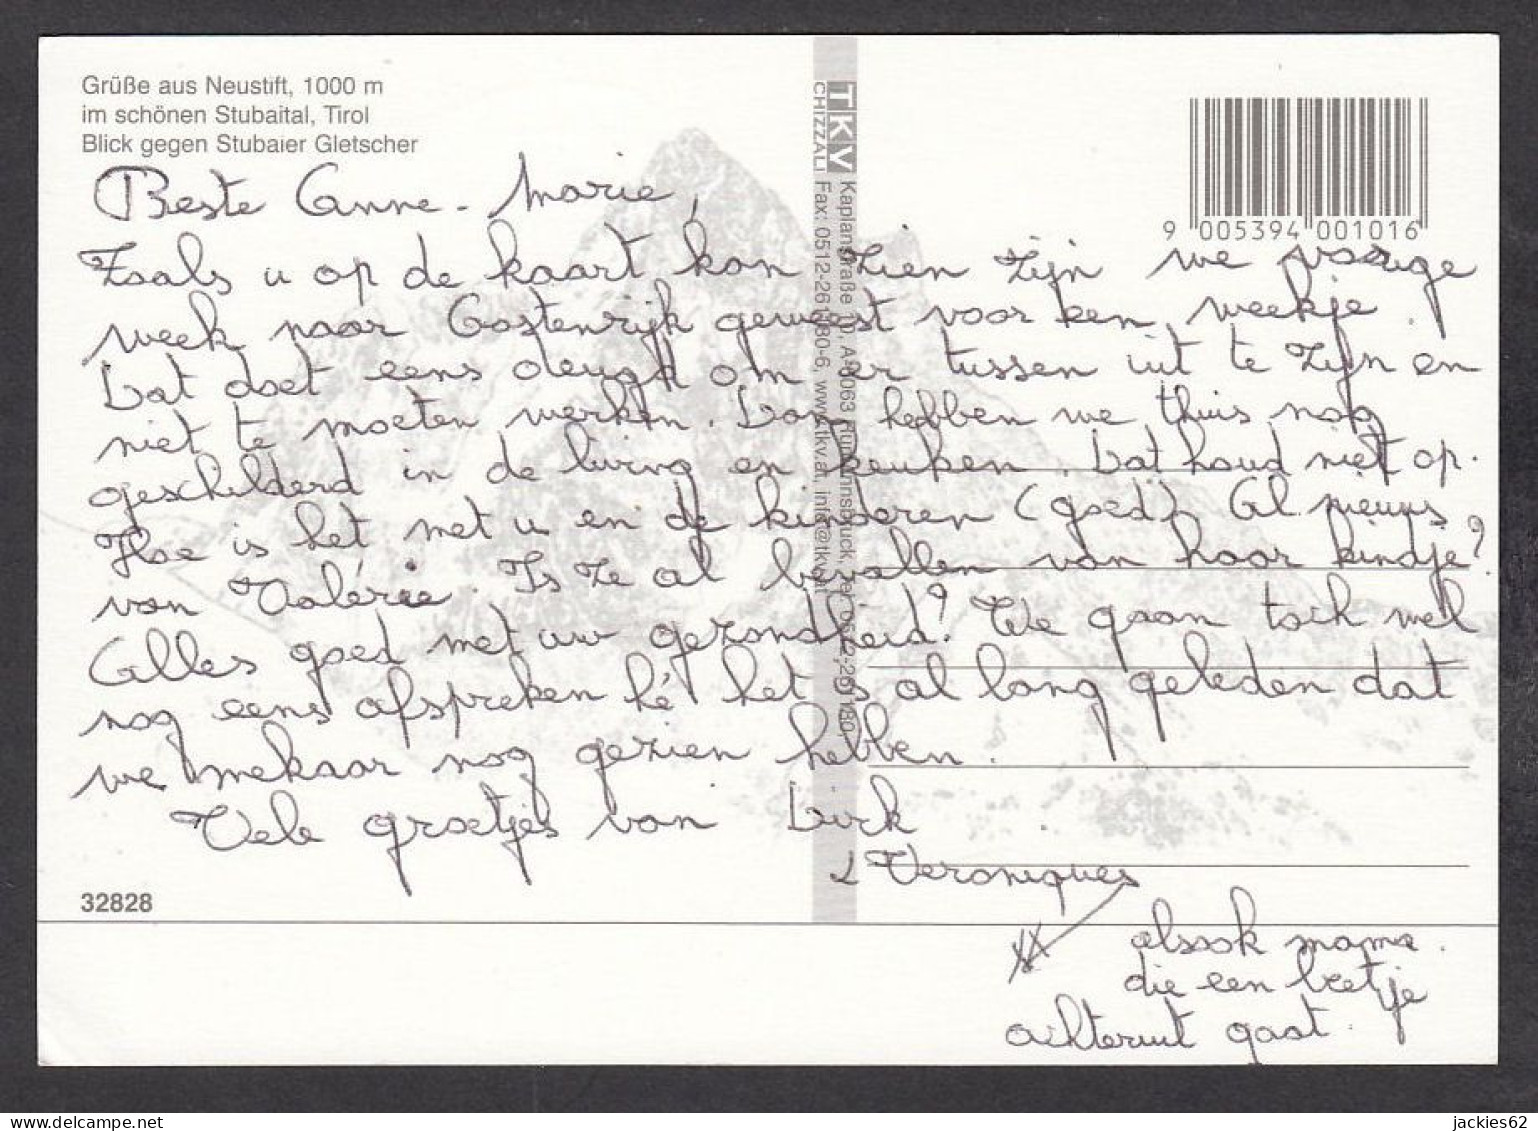 Grüße aus Neustift, 1000 m
im schönen Stubaital, Tirol
Blick gegen Stubaier Gletscher
TKV
CHIZZALI
Fax: 0512-26
-6, www.tkv.at, info@tkv.at
9 005394 001016
Beste Anne-Marie,
Zoals u op de kaart kan zien zijn we vorige
week naar Oostenrijk geweest voor een weekje.
Dat doet eens deugd om er tussen uit te zijn en
niet te moeten werken. Dan hebben we thuis nog
geschilderd in de living en keuken. Dat houd niet op.
Hoe is het met u en de kinderen (goed) Al nieuws
van Valérie. Is ze al bevallen van haar kindje?
Alles goed met uw gezondheid? We gaan toch wel
nog eens afspreken hé het is al lang geleden dat
we mekaar nog gezien hebben.
Vele groetjes van Dirk
Veroniques
alsook mama.
die een beetje
achteruit gaat.
32828
jackies62